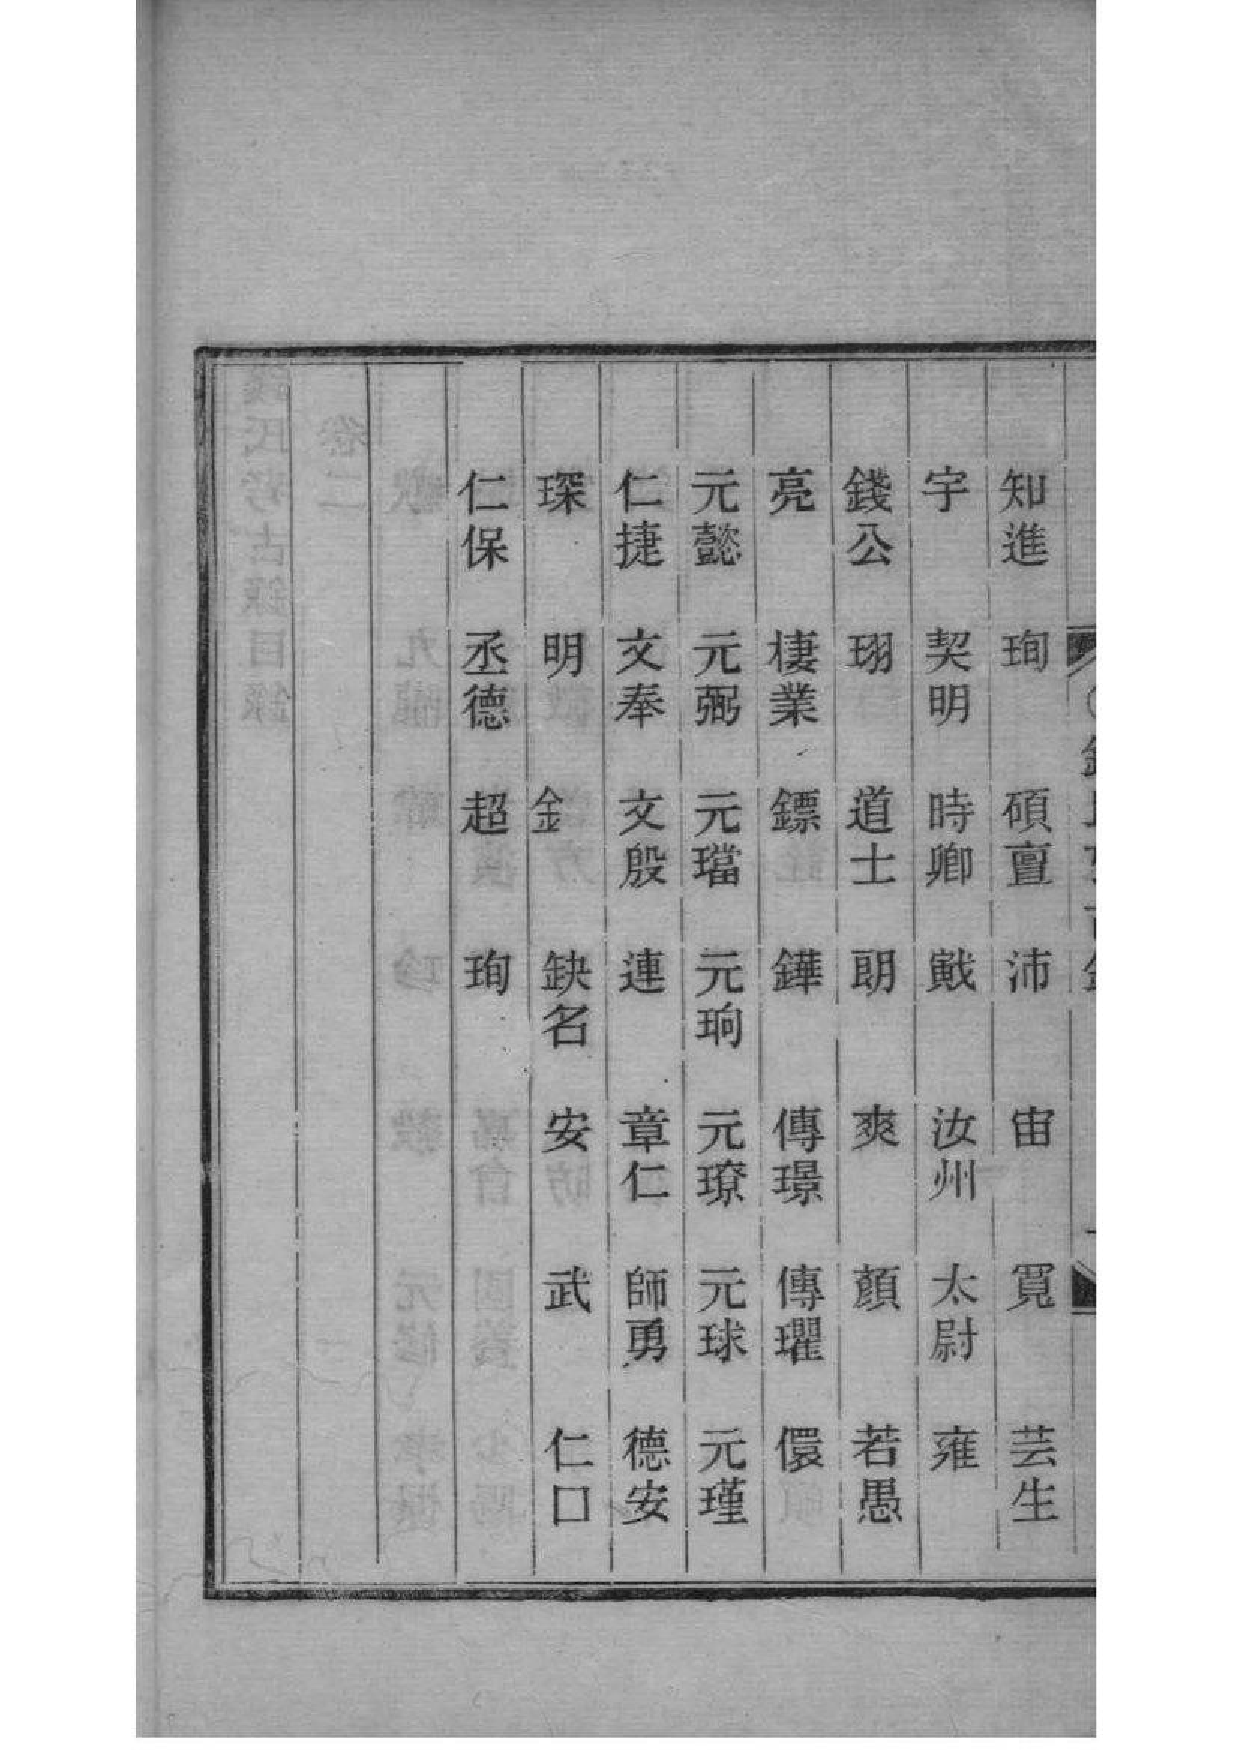 知進 珣 碩亶 沛 宙 寬 芸生
宇 契明 時卿 戭 汝州 太尉 雍
錢公 珝 道士 朗 爽 顔 若愚
亮 棲業 鏢 鏵 傳璟 傳瓘 儇
元懿 元弼 元璫 元珦 元璙 元球 元瓘
仁捷 文奉 文殷 連 章仁 師勇 德安
琛 明 釒 缺名 安 武 仁口
仁保 丞德 超 珣